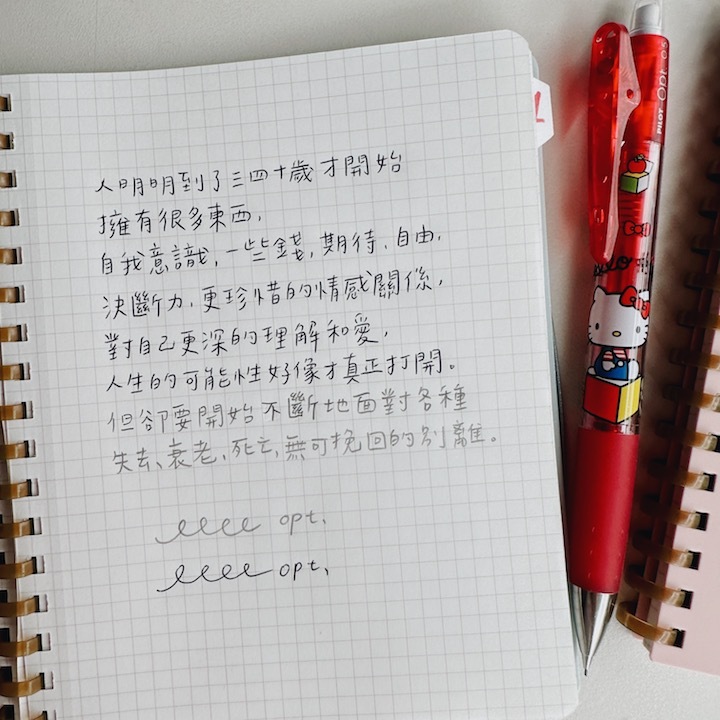 人明明到了三四十歲才開始
擁有很多東西,
自我意識,一些錢,期待、自由,
決斷力,更珍惜的情感關係,
對自己更深的理解和愛,
人生的可能性好像才真正打開。
但卻要開始不斷地面對各種
失去、衰老、死亡,無可挽回的別離。
eeee opt,
eeee opt,
PILOT Opt. 05